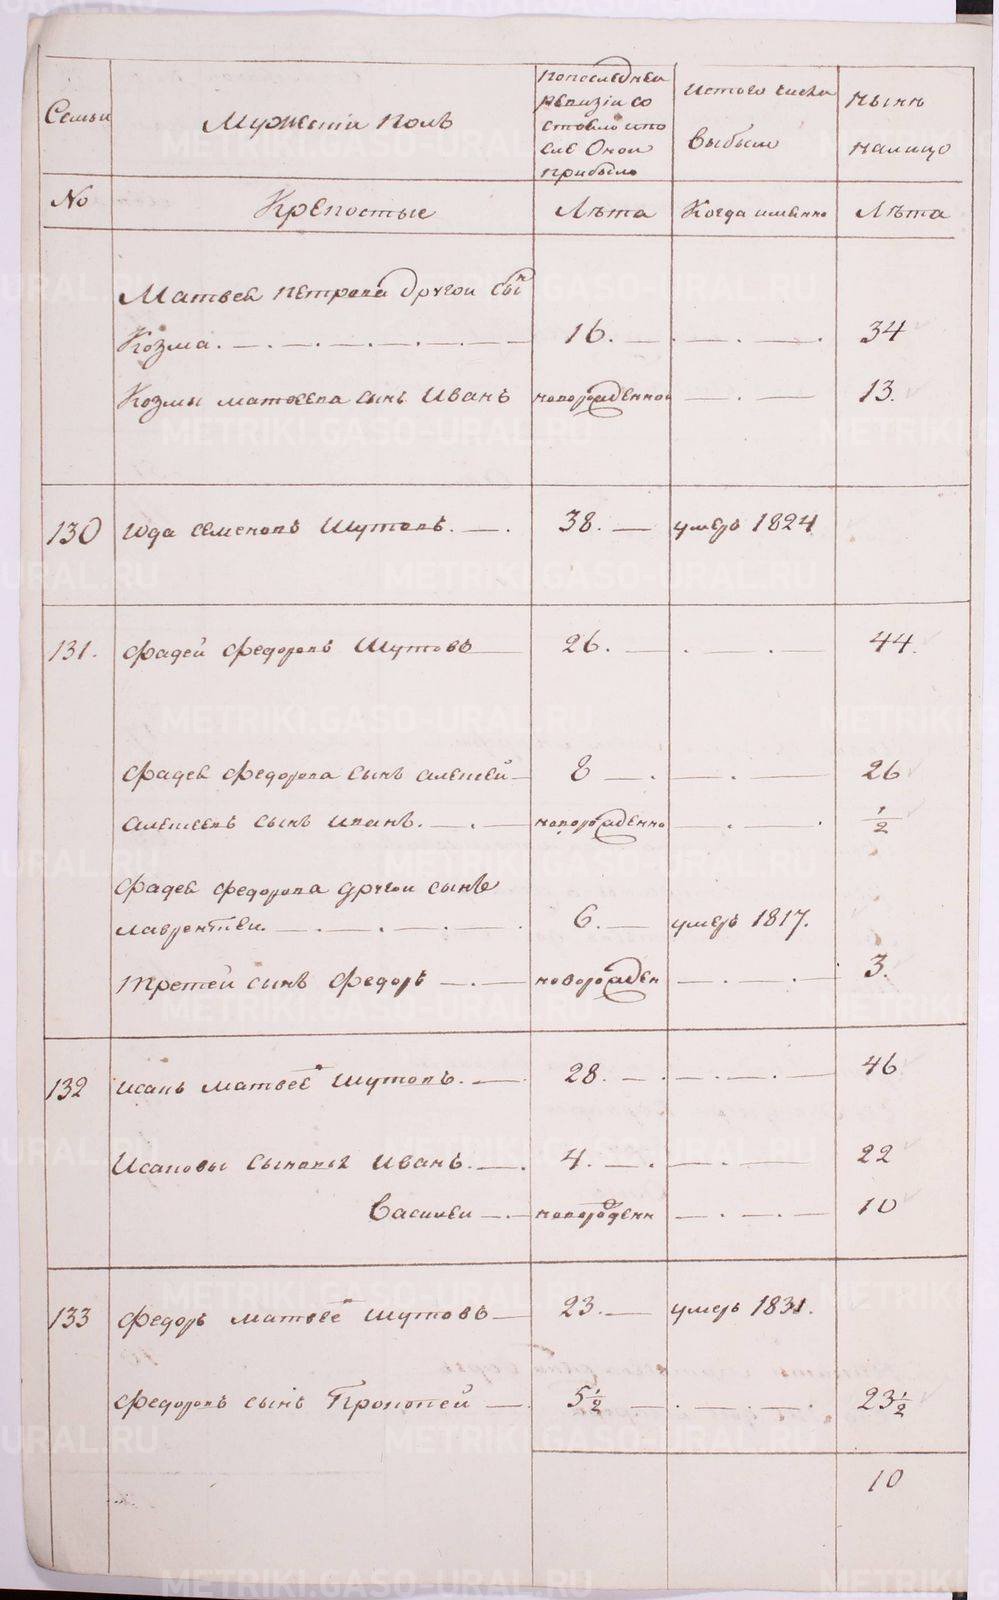 Семьи
Мужескій Полъ
Попоследней
ревизіи со
стояло ипо
сле Оной
прибыло
Истого числа
выбыло
Нынѣ
налицо
No
Крепостые
Лѣта
Когда имянно
Лѣта
Матвея петрова другой сынъ
Козма. 16. 34
Козмы матвеева сынъ Иванъ новорожденной 13.
130 юда семеновъ Шутовъ. 38. умеръ 1824
131. фадей федоровъ Шутовъ 26. 44.
фадея федорова сынъ алексей 8 26
алексеевъ сынъ иванъ. новорожденно 1/2
фадея федорова другой сынъ
лаврентей. 6. умеръ 1817.
третей сынъ федоръ новорожден 3.
132 исакъ матвеевъ шутовъ. 28. 46
Исаковы сыновья Иванъ. 4. 22
Василей новорожденн 10
133 федоръ матвеевъ шутовъ 23. умеръ 1831.
федоровъ сынъ Прокопей 5 1/2 23 1/2
10
METRIKI.GASO-URAL.RU